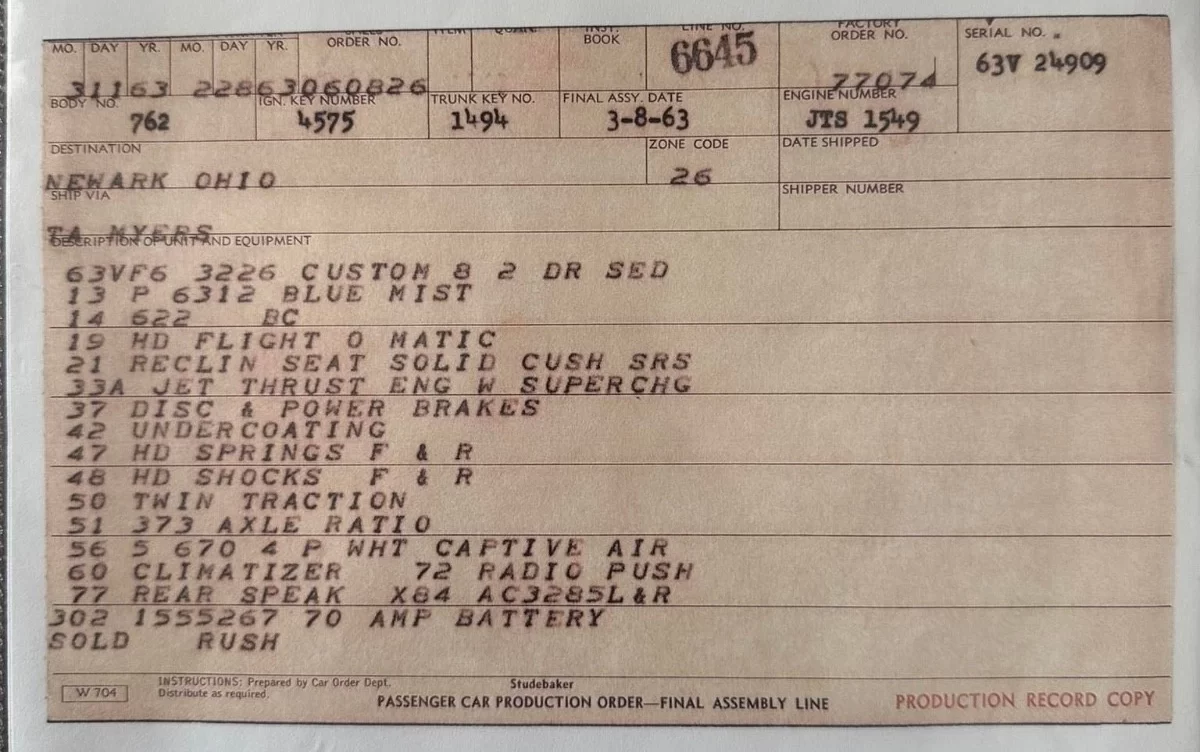 MO. DAY YR. MO. DAY YR. ORDER NO. BOOK LINE NO. FACTORY ORDER NO. SERIAL NO.
31163 22863060826 6645 77074 63V 24909
BODY NO. IGN. KEY NUMBER TRUNK KEY NO. FINAL ASSY. DATE ENGINE NUMBER
762 4575 1494 3-8-63 JTS 1549
DESTINATION ZONE CODE DATE SHIPPED
NEWARK OHIO 26
SHIP VIA SHIPPER NUMBER
TA MYERS
DESCRIPTION OF UNIT AND EQUIPMENT
63VF6 3226 CUSTOM 8 2 DR SED
13 P 6312 BLUE MIST
14 622 BC
19 HD FLIGHT O MATIC
21 RECLIN SEAT SOLID CUSH SRS
33A JET THRUST ENG W SUPERCHG
37 DISC & POWER BRAKES
42 UNDERCOATING
47 HD SPRINGS F & R
48 HD SHOCKS F & R
50 TWIN TRACTION
51 373 AXLE RATIO
56 5 670 4 P WHT CAPTIVE AIR
60 CLIMATIZER 72 RADIO PUSH
77 REAR SPEAK X84 AC3285L&R
302 1555267 70 AMP BATTERY
SOLD RUSH
W 704
INSTRUCTIONS: Prepared by Car Order Dept.
Distribute as required.
Studebaker
PASSENGER CAR PRODUCTION ORDER—FINAL ASSEMBLY LINE
PRODUCTION RECORD COPY